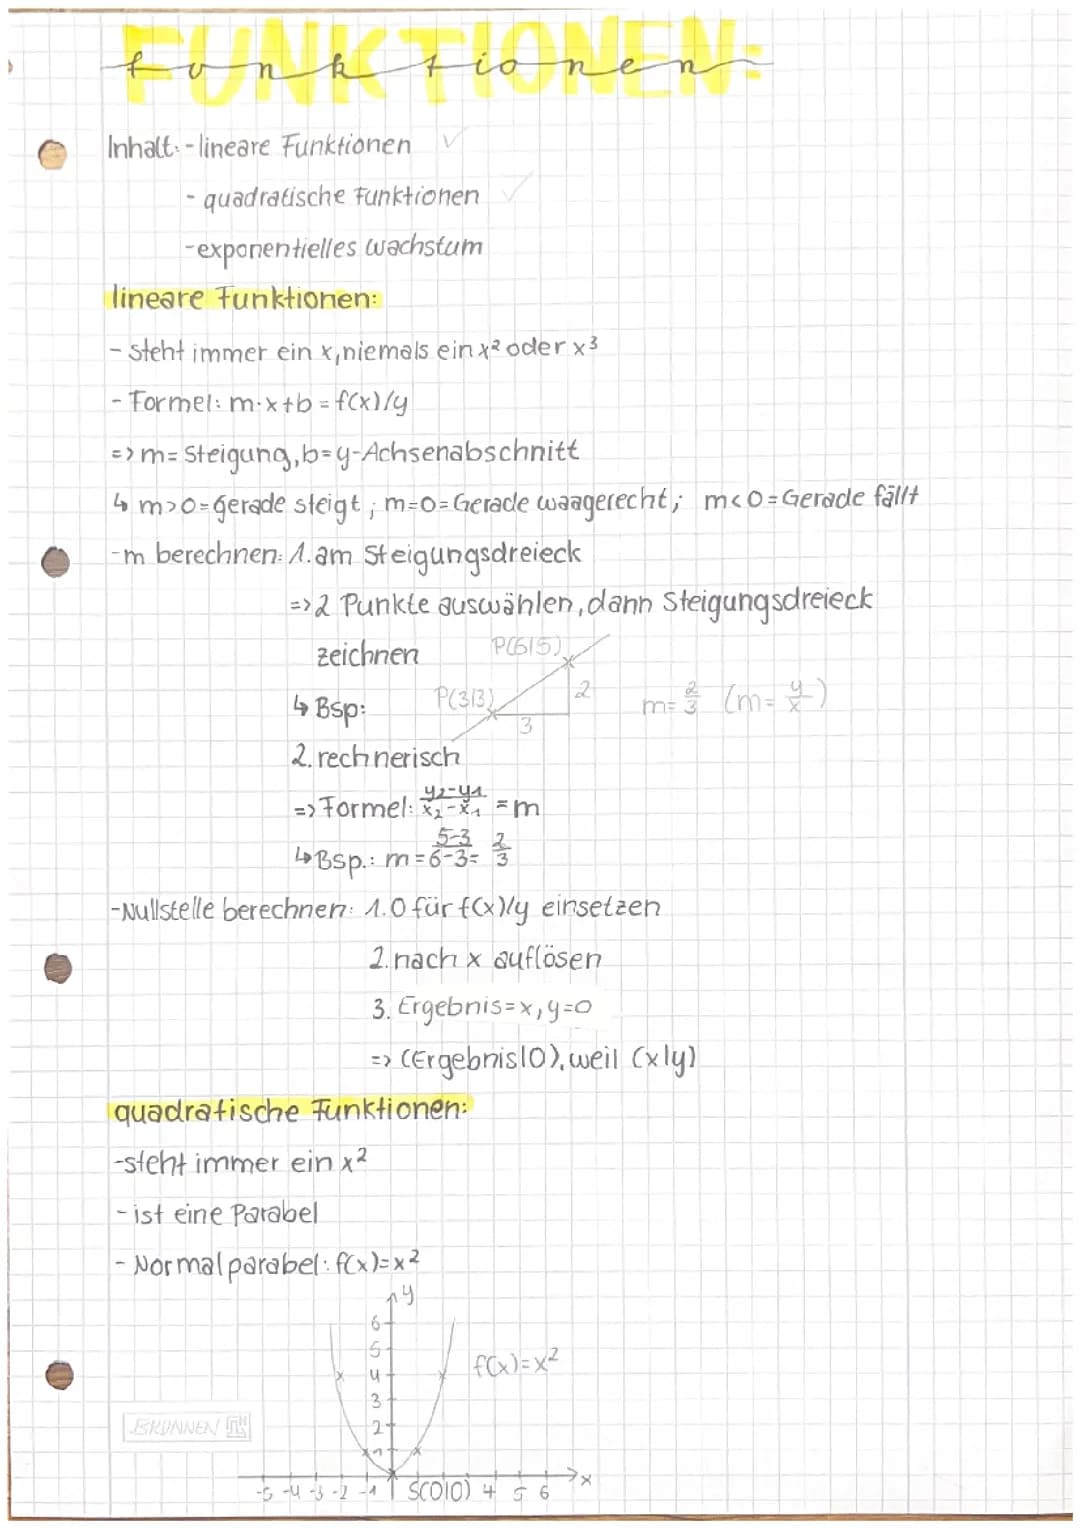 FUNKTIONEN:
funktionen
Inhalt: - lineare Funktionen ✓
- quadratische Funktionen ✓
- exponentielles Wachstum
lineare Funktionen:
- steht immer ein x, niemals ein x² oder x³
- Formel: m·x+b = f(x)/y
=> m = Steigung, b = y-Achsenabschnitt
↳ m>0 = gerade steigt ; m=0 = Gerade waagerecht ; m<0 = Gerade fällt
- m berechnen: 1. am Steigungsdreieck
=> 2 Punkte auswählen, dann Steigungsdreieck
zeichnen
P(6|5)
↳ Bsp: P(3|3) 2 3 m = 2/3 (m = y/x)
2. rechnerisch
=> Formel: y₂-y₁/x₂-x₁ = m
↳ Bsp.: m = 5-3/6-3 = 2/3
- Nullstelle berechnen: 1. 0 für f(x)/y einsetzen
2. nach x auflösen
3. Ergebnis = x, y=0
=> (Ergebnis|0), weil (x|y)
quadratische Funktionen:
- steht immer ein x²
- ist eine Parabel
- Normalparabel: f(x)=x²
y
6
5
4 f(x)=x²
3
2
1
BRUNNEN
x
-5 -4 -3 -2 -1 S(0|0) 4 5 6